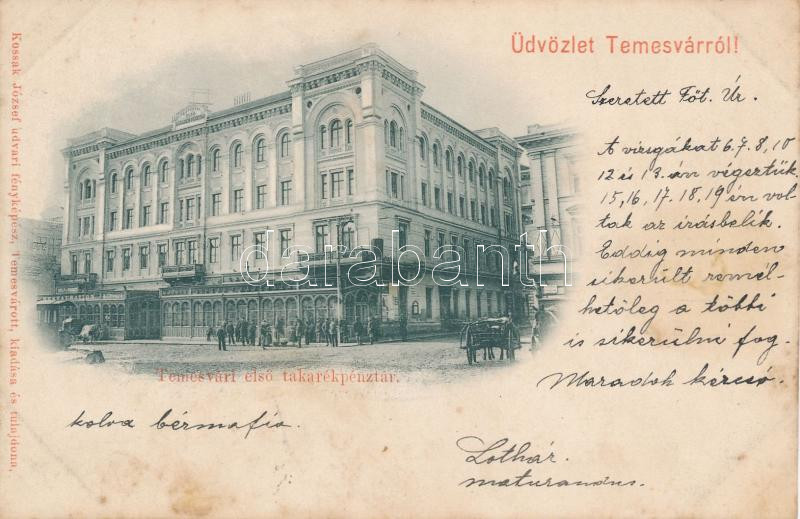 Üdvözlet Temesvárról!
Kossak József udvari fényképész, Temesvárott, kiadása és tulajdona,
Szeretett Föt. Úr.
A vizsgákat 6. 7. 8, 10
12 és 13.-án végeztük
15, 16, 17. 18. 19 én vol
tak az irásbelik.
Eddig minden
sikerült remél-
hetőleg a többi
is sikerülni fog.
Maradok kézcsó.
kolva bérmafia.
Lothár.
maturandus.
Temesvári első takarékpénztár.
darabanth